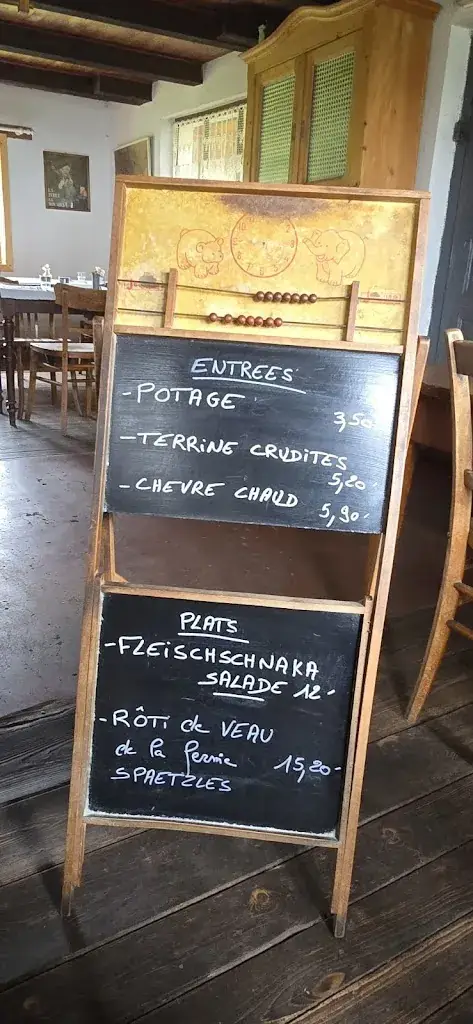 ENTREES
- POTAGE
3,50
- TERRINE CRUDITES
5,20-
- CHEVRE CHAUD
5,90-
PLATS
- FLEISCHSCHNAKA
SALADE 12.-
- RÔTI de VEAU
de la ferme 15,20-
SPAETZLES